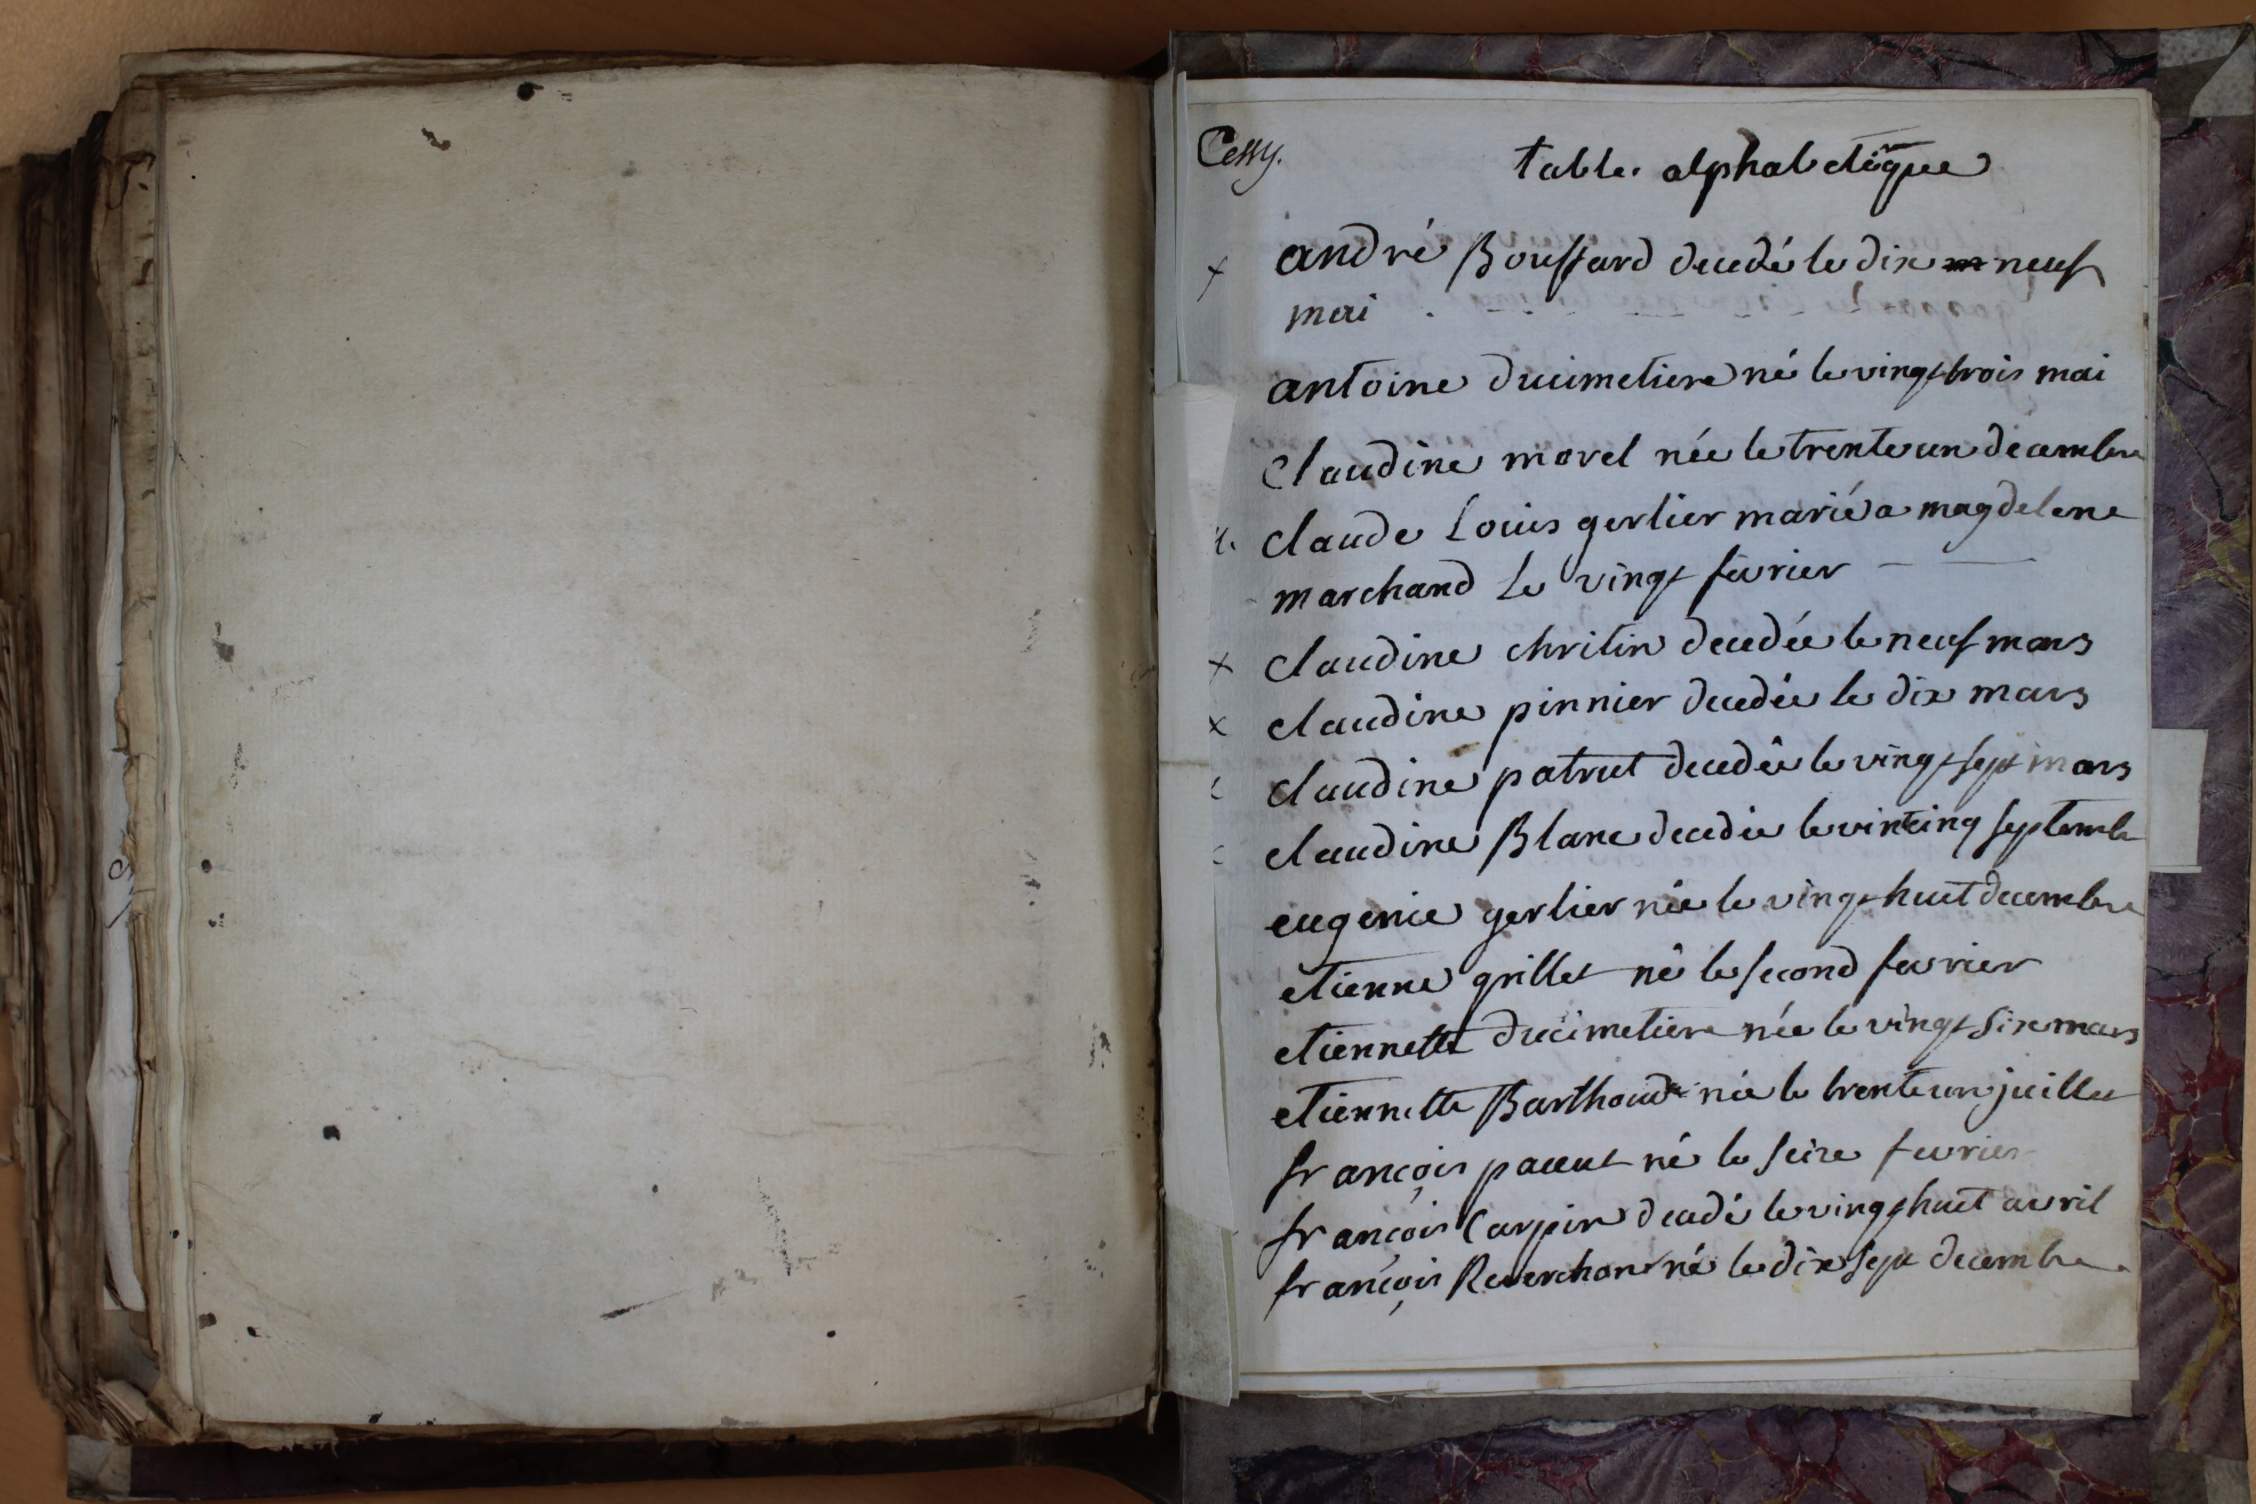 Cessy.
table alphabetique
x andré Boussard decedé le dix neuf
mai
antoine ducimetiere né le vingt trois mai
Claudine morel née le trente un decembre
claude Louis gerlier marié a magdelene
marchand le vingt fevrier
x claudine chritin decedée le neuf mars
x claudine pinnier decedée le dix mars
claudine patrut decedée le vingt sept mars
claudine Blanc decedée le vintcinq septembre
eugenie gerlier née le vingt huit decembre
etienne grillet né le second fevrier
etiennette ducimetiere née le vingt six mars
etiennette Barthoud née le trente un juillet
françois paccut né le seize fevrier
françois Carpin decedé le vingt huit avril
françois Reverchon né le dix sept decembre